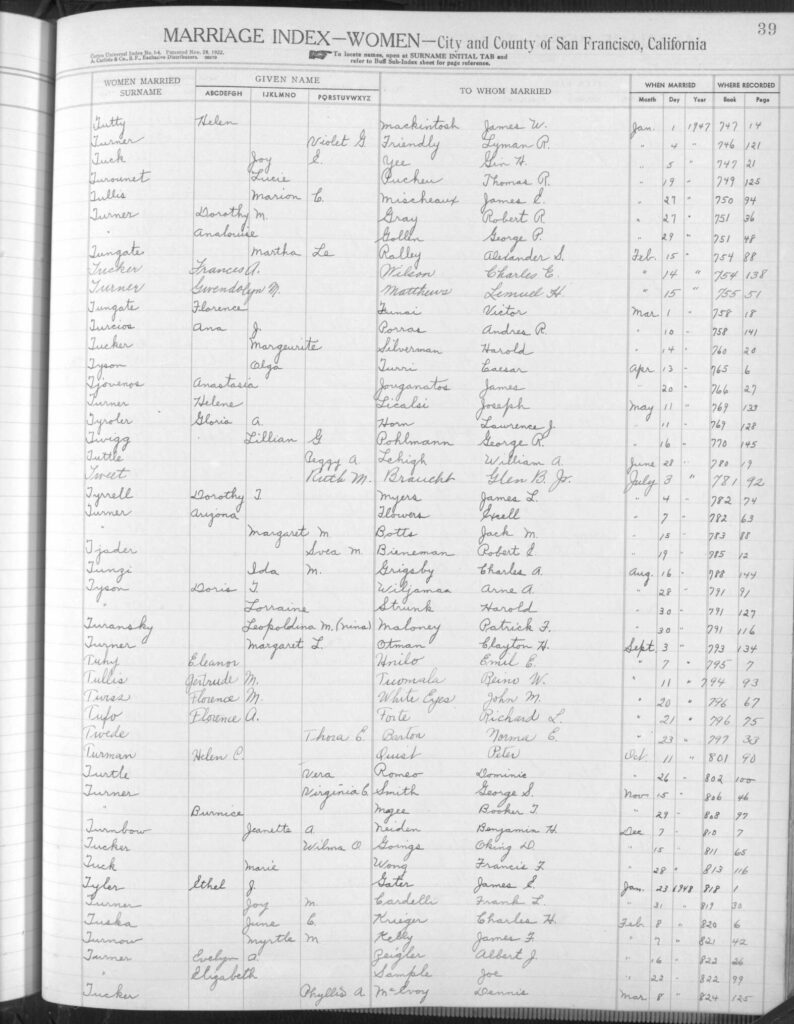 39
MARRIAGE INDEX—WOMEN—City and County of San Francisco, California
Cott's Universal Index No. 64. Patented Nov. 28, 1922.
A. Carlisle & Co., S. F., Exclusive Distributors.
To locate names, open at SURNAME INITIAL TAB and
refer to Buff Sub-Index sheet for page reference.
WOMEN MARRIED SURNAME GIVEN NAME TO WHOM MARRIED WHEN MARRIED WHERE RECORDED
ABCDEFGH IJKLMNO PQRSTUVWXYZ Month Day Year Book Page
Tutty Helen Mackintosh James W. Jan. 1 1947 747 14
Turner Violet G. Friendly Lyman R. " 4 " 746 121
Tuck Joy S. Yee Gin H. " 5 " 747 21
Turounet Lucie Pucheu Thomas R. " 19 " 749 125
Tullis Marion C. Mischeaux James E. " 27 " 750 94
Turner Dorothy M. Gray Robert R " 27 " 751 36
" Analouise Gollin George P. " 29 " 751 48
Tungate Martha Le Ralley Alexander S. Feb. 15 " 754 88
Tucker Frances A. Wilson Charles E. " 14 " 754 138
Turner Gwendolyn M. Matthews Lemuel H. " 15 " 755 51
Tungate Florence Funai Victor Mar. 1 " 758 18
Turcios Ana J. Porras Andres R. " 10 " 758 141
Tucker Margeurite Silverman Harold " 14 " 760 20
Tyson Olga Turri Caesar Apr 13 " 765 6
Tjovenos Anastasia Jouganatos James 20 " 766 27
Turner Helene Licalsi Joseph May 11 " 769 133
Tyroler Gloria A. Horn Lawrence J. " 11 " 769 128
Twigg Lillian G Pohlmann George R. " 16 " 770 145
Tuttle Peggy A. Lehigh William A. June 28 " 780 19
Tweet Ruth M. Braucht Glen B. Jr. July 3 " 781 92
Tyrrell Dorothy T. Myers James L. " 4 " 782 74
Turner Arizona Flowers Excell " 7 " 782 63
" Margaret M Botts Jack M. " 15 " 783 88
Tjader Svea M. Bieneman Robert E. " 19 " 785 12
Tunzi Ida M. Grigsby Charles A. Aug. 16 " 788 144
Tyson Doris T. Wiljamaa Arne A. " 28 " 791 91
" Lorraine Strunk Harold " 30 " 791 127
Turansky Leopoldina M. (nina) Maloney Patrick F. " 30 " 791 116
Turner Margaret L. Otman Clayton H. Sept. 3 " 793 134
Tuhy Eleanor Hnilo Emil E. " 7 " 795 7
Tullis Gertrude M. Tuomala Reino W. " 11 " 794 93
Florence M. White Eyes John M. " 20 " 796 67
Tufo Florence A. Forte Richard L. " 21 " 796 75
Twede Thora E. Barton Norma E. " 23 " 797 33
Turman Helen C. Quist Peter Oct. 11 " 801 90
Turtle Vera Romeo Dominic " 26 " 802 100
Turner Virginia E. Smith George S. Nov 15 " 806 46
" Burnice Mgee Booker T. " 29 " 808 97
Turnbow Jeanette A. Neiden Benjamin H. Dec 7 " 810 7
Tucker Wilma O Goings Oking D. " 15 " 811 65
Tuck Marie Wong Francis F. " 28 " 813 116
Tyler Ethel J. Gater James E. Jan. 23 1948 818 1
Turner Joy M. Cardelli Frank L. " 31 " 819 30
Tuska June C. Krieger Charles H. Feb 8 " 820 6
Turnow Myrtle M Kelly James F. " 7 " 821 42
Turner Evelyn A. Zeigler Albert J. " 16 " 822 26
" Elizabeth Sample Joe " 22 " 822 99
Tucker Phyllis A McEvoy Dennis Mar 8 " 824 125